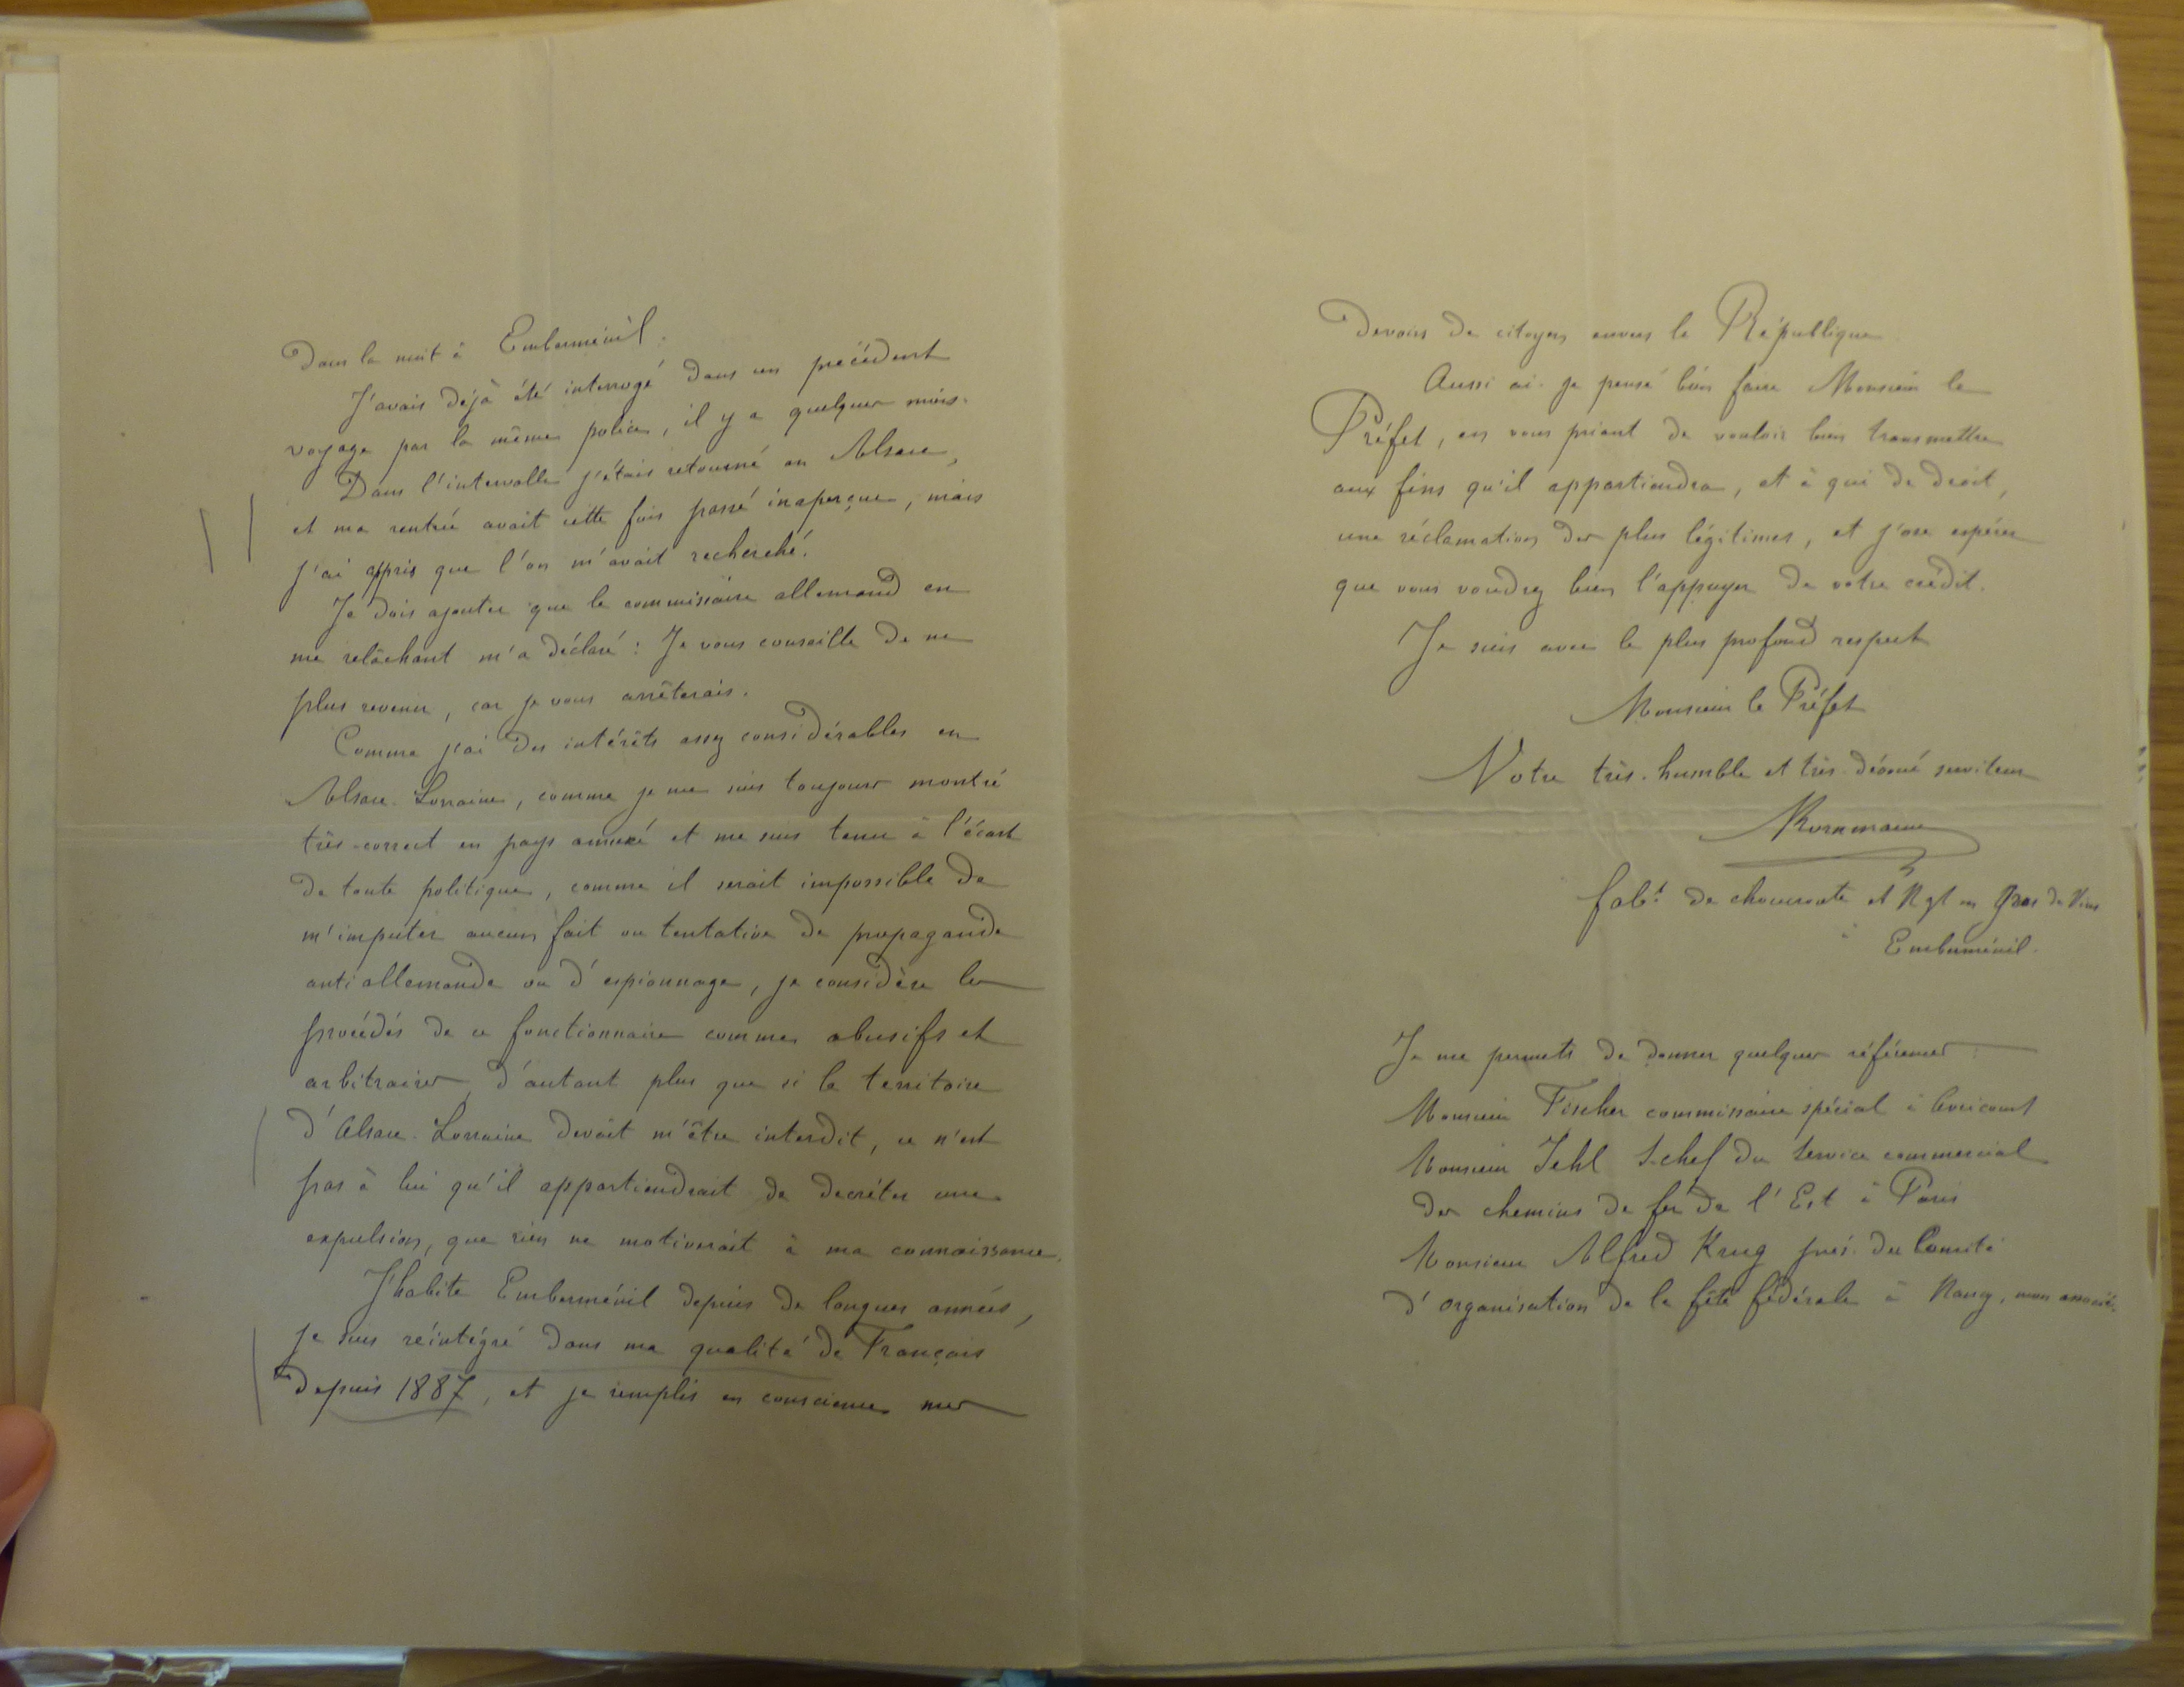 dans la nuit à Emberménil.
J'avais déjà été interrogé dans un précédent
voyage par la même police, il y a quelques mois.
Dans l'intervalle j'étais retourné en Alsace,
et ma rentrée avait cette fois passé inaperçue, mais
j'ai appris que l'on m'avait recherché.
Je dois ajouter que le commissaire allemand en
me relâchant m'a déclaré : Je vous conseille de ne
plus revenir, car je vous arrêterais.
Comme j'ai des intérêts assez considérables en
Alsace-Lorraine, comme je me suis toujours montré
très-correct en pays annexé et me suis tenu à l'écart
de toute politique, comme il serait impossible de
m'imputer aucun fait ou tentative de propagande
antiallemande ou d'espionnage, je considère les
procédés de ce fonctionnaire comme abusifs et
arbitraires, d'autant plus que si le territoire
d'Alsace-Lorraine devait m'être interdit, ce n'est
pas à lui qu'il appartiendrait de decréter une
expulsion, que rien ne motiverait à ma connaissance.
J'habite Emberménil depuis de longues années,
je suis réintégré dans ma qualité de Français
depuis 1887, et je remplis en conscience mes
devoirs de citoyen envers la République
Aussi ai-je pensé bien faire Monsieur le
Préfet, en vous priant de vouloir bien transmettre
aux fins qu'il appartiendra, et à qui de droit,
une réclamation des plus légitimes, et j'ose espérer
que vous voudrez bien l'appuyer de votre crédit.
Je suis avec le plus profond respect
Monsieur le Préfet
Votre très-humble et très-dévoué serviteur
Kornmann
fabt de choucroute et Ngt en Gros de Vins
à Emberménil.
Je me permets de donner quelques références
Monsieur Fischer commissaire spécial à Avricourt
Monsieur Jehl S-chef du Service commercial
des chemins de fer de l'Est à Paris
Monsieur Alfred Krug prés. du Comité
d'organisation de la fête fédérale à Nancy, mon associé.